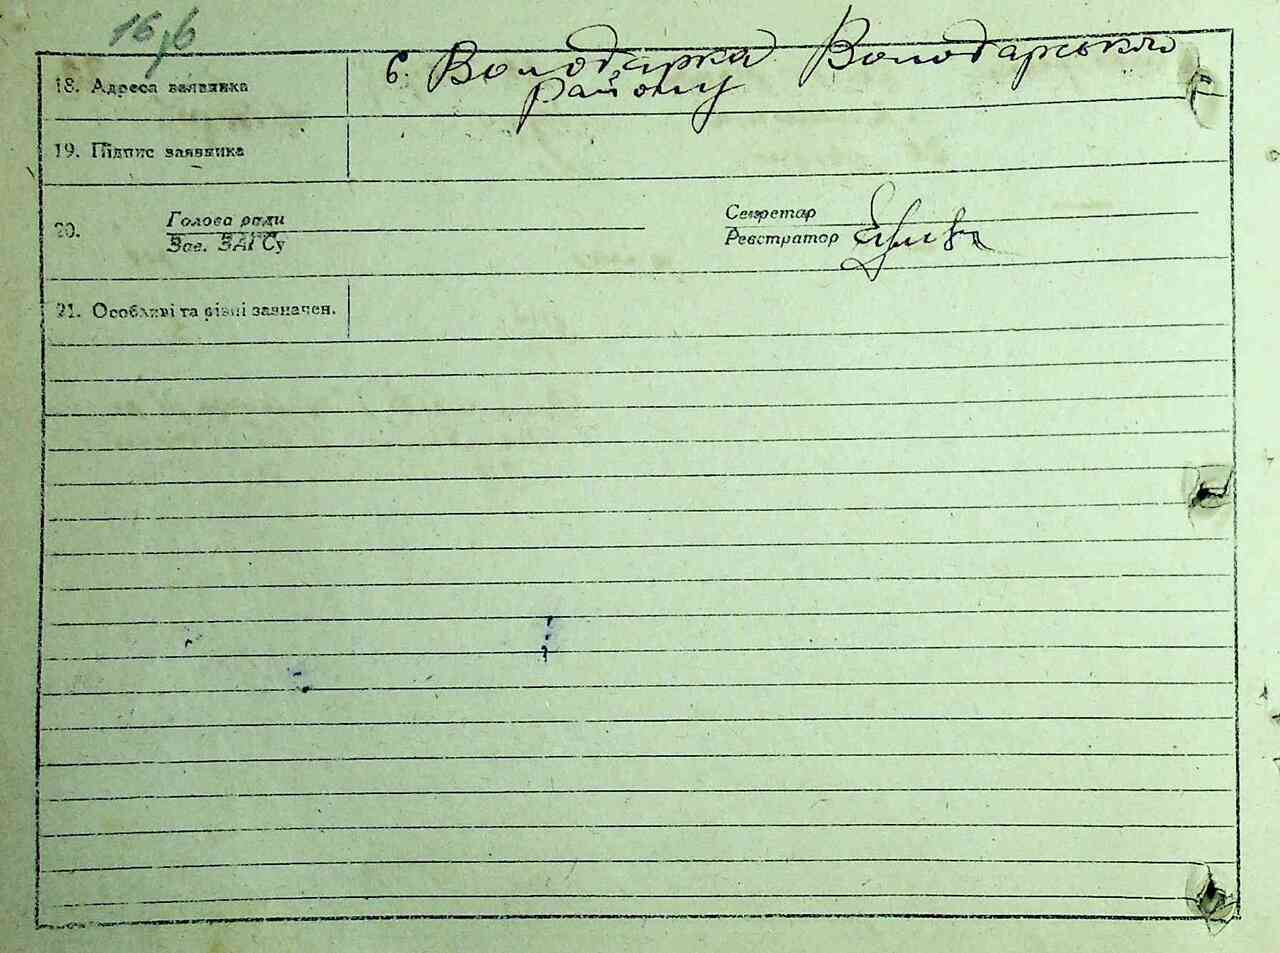 16
18. Адреса заявника
с. Володарка Володарського
району
19. Підпис заявника
20.
Голова ради
Зав. ЗАГСу
Секретар
Реєстратор
21. Особливі та різні зазначен.